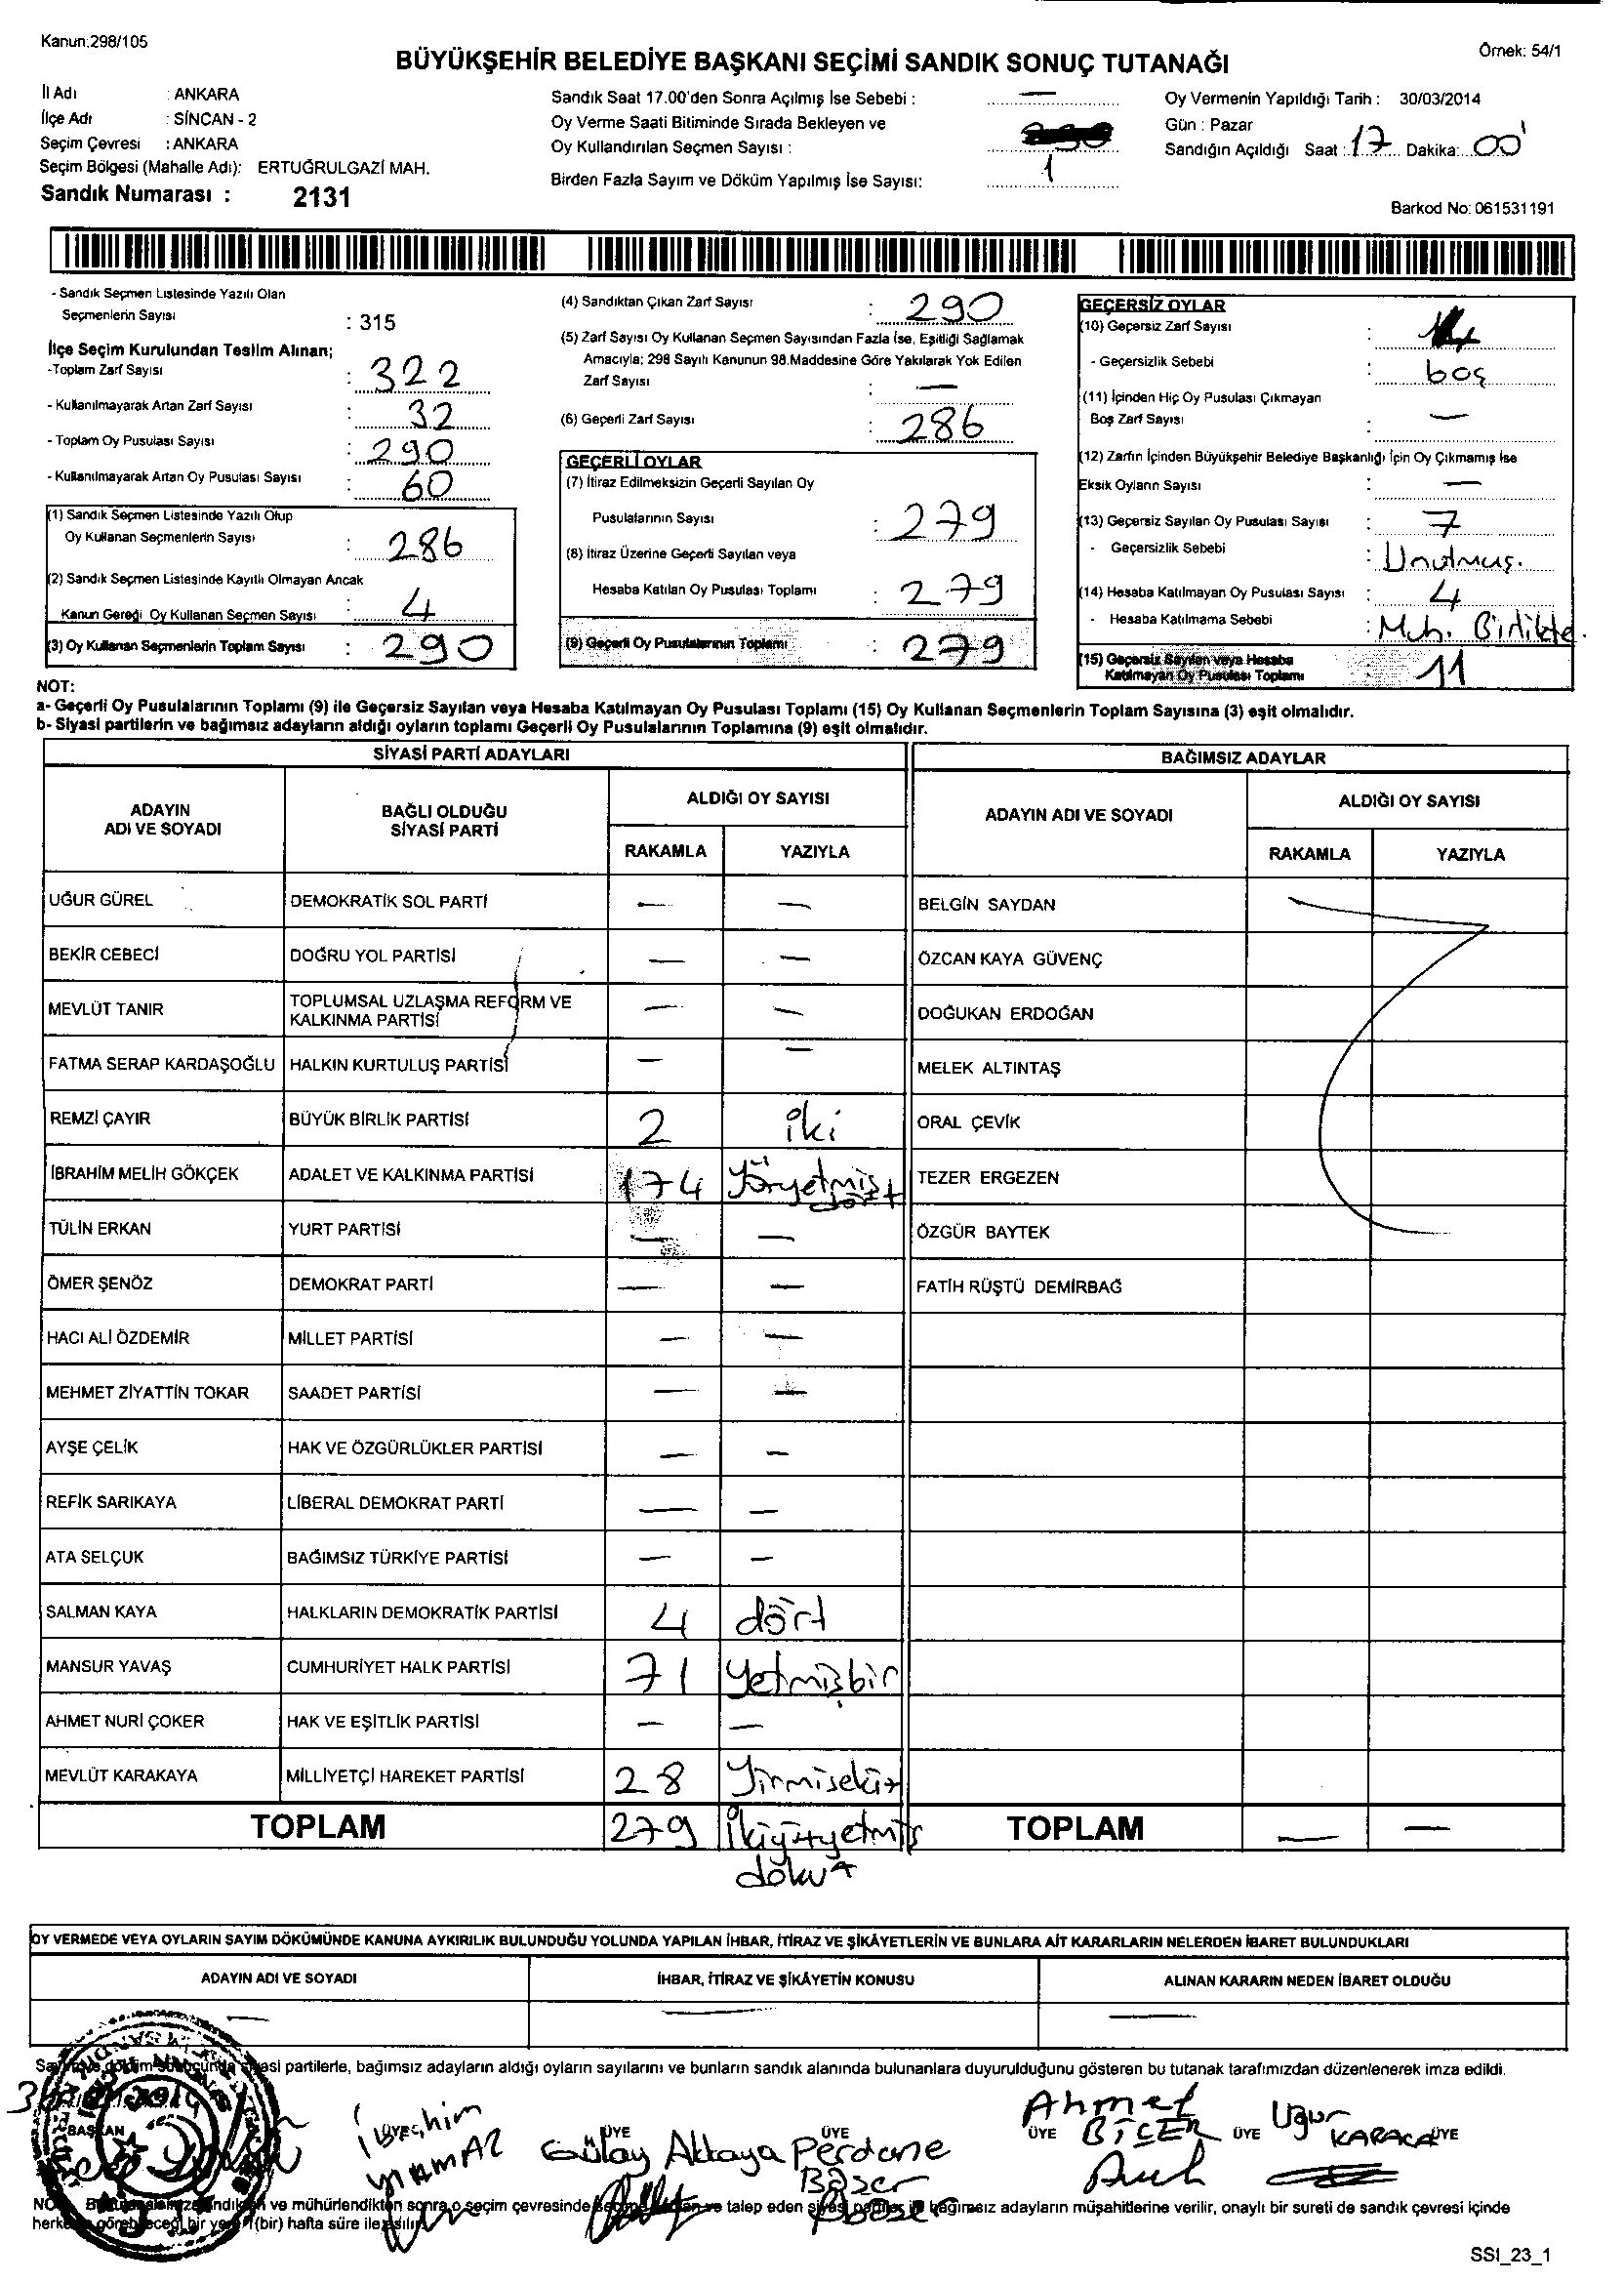 Kanun:298/105
Örnek: 54/1
BÜYÜKŞEHİR BELEDİYE BAŞKANI SEÇİMİ SANDIK SONUÇ TUTANAĞI
İl Adı : ANKARA
İlçe Adı : SİNCAN - 2
Seçim Çevresi : ANKARA
Seçim Bölgesi (Mahalle Adı): ERTUĞRULGAZİ MAH.
Sandık Numarası : 2131
Sandık Saat 17.00'den Sonra Açılmış İse Sebebi : —
Oy Verme Saati Bitiminde Sırada Bekleyen ve
Oy Kullandırılan Seçmen Sayısı :
Birden Fazla Sayım ve Döküm Yapılmış İse Sayısı: 1
Oy Vermenin Yapıldığı Tarih : 30/03/2014
Gün : Pazar
Sandığın Açıldığı Saat : 17 Dakika: 00'
Barkod No: 061531191
- Sandık Seçmen Listesinde Yazılı Olan
Seçmenlerin Sayısı : 315
İlçe Seçim Kurulundan Teslim Alınan;
-Toplam Zarf Sayısı : 322
- Kullanılmayarak Artan Zarf Sayısı : 32
- Toplam Oy Pusulası Sayısı : 290
- Kullanılmayarak Artan Oy Pusulası Sayısı : 60
(1) Sandık Seçmen Listesinde Yazılı Olup
Oy Kullanan Seçmenlerin Sayısı : 286
(2) Sandık Seçmen Listesinde Kayıtlı Olmayan Ancak
Kanun Gereği Oy Kullanan Seçmen Sayısı : 4
(3) Oy Kullanan Seçmenlerin Toplam Sayısı : 290
(4) Sandıktan Çıkan Zarf Sayısı : 290
(5) Zarf Sayısı Oy Kullanan Seçmen Sayısından Fazla İse, Eşitliği Sağlamak
Amacıyla; 298 Sayılı Kanunun 98.Maddesine Göre Yakılarak Yok Edilen
Zarf Sayısı : —
(6) Geçerli Zarf Sayısı : 286
GEÇERLİ OYLAR
(7) İtiraz Edilmeksizin Geçerli Sayılan Oy
Pusulalarının Sayısı : 279
(8) İtiraz Üzerine Geçerli Sayılan veya
Hesaba Katılan Oy Pusulası Toplamı : 279
(9) Geçerli Oy Pusulalarının Toplamı : 279
GEÇERSİZ OYLAR
(10) Geçersiz Zarf Sayısı :
- Geçersizlik Sebebi : boş
(11) İçinden Hiç Oy Pusulası Çıkmayan
Boş Zarf Sayısı : —
(12) Zarfın İçinden Büyükşehir Belediye Başkanlığı İçin Oy Çıkmamış İse
Eksik Oyların Sayısı : —
(13) Geçersiz Sayılan Oy Pusulası Sayısı : 7
- Geçersizlik Sebebi : Unutmuş.
(14) Hesaba Katılmayan Oy Pusulası Sayısı : 4
- Hesaba Katılmama Sebebi : Muh. Birlikte.
(15) Geçersiz Sayılan veya Hesaba
Katılmayan Oy Pusulası Toplamı : 11
NOT:
a- Geçerli Oy Pusulalarının Toplamı (9) ile Geçersiz Sayılan veya Hesaba Katılmayan Oy Pusulası Toplamı (15) Oy Kullanan Seçmenlerin Toplam Sayısına (3) eşit olmalıdır.
b- Siyasi partilerin ve bağımsız adayların aldığı oyların toplamı Geçerli Oy Pusulalarının Toplamına (9) eşit olmalıdır.
SİYASİ PARTİ ADAYLARI
ADAYIN
ADI VE SOYADI
BAĞLI OLDUĞU
SİYASİ PARTİ
ALDIĞI OY SAYISI
RAKAMLA YAZIYLA
UĞUR GÜREL DEMOKRATİK SOL PARTİ — —
BEKİR CEBECİ DOĞRU YOL PARTİSİ — —
MEVLÜT TANIR TOPLUMSAL UZLAŞMA REFORM VE
KALKINMA PARTİSİ — —
FATMA SERAP KARDAŞOĞLU HALKIN KURTULUŞ PARTİSİ — —
REMZİ ÇAYIR BÜYÜK BİRLİK PARTİSİ 2 iki
İBRAHİM MELİH GÖKÇEK ADALET VE KALKINMA PARTİSİ 174 Yüzyetmiş
dört
TÜLİN ERKAN YURT PARTİSİ — —
ÖMER ŞENÖZ DEMOKRAT PARTİ — —
HACI ALİ ÖZDEMİR MİLLET PARTİSİ — —
MEHMET ZİYATTİN TOKAR SAADET PARTİSİ — —
AYŞE ÇELİK HAK VE ÖZGÜRLÜKLER PARTİSİ — —
REFİK SARIKAYA LİBERAL DEMOKRAT PARTİ — —
ATA SELÇUK BAĞIMSIZ TÜRKİYE PARTİSİ — —
SALMAN KAYA HALKLARIN DEMOKRATİK PARTİSİ 4 dört
MANSUR YAVAŞ CUMHURİYET HALK PARTİSİ 71 Yetmişbir
AHMET NURİ ÇOKER HAK VE EŞİTLİK PARTİSİ — —
MEVLÜT KARAKAYA MİLLİYETÇİ HAREKET PARTİSİ 28 Yirmisekiz
TOPLAM 279 İkiyüzyetmiş
dokuz
BAĞIMSIZ ADAYLAR
ADAYIN ADI VE SOYADI
ALDIĞI OY SAYISI
RAKAMLA YAZIYLA
BELGİN SAYDAN
ÖZCAN KAYA GÜVENÇ
DOĞUKAN ERDOĞAN
MELEK ALTINTAŞ
ORAL ÇEVİK
TEZER ERGEZEN
ÖZGÜR BAYTEK
FATİH RÜŞTÜ DEMİRBAĞ
TOPLAM — —
OY VERMEDE VEYA OYLARIN SAYIM DÖKÜMÜNDE KANUNA AYKIRILIK BULUNDUĞU YOLUNDA YAPILAN İHBAR, İTİRAZ VE ŞİKÂYETLERİN VE BUNLARA AİT KARARLARIN NELERDEN İBARET BULUNDUKLARI
ADAYIN ADI VE SOYADI İHBAR, İTİRAZ VE ŞİKÂYETİN KONUSU ALINAN KARARIN NEDEN İBARET OLDUĞU
— — —
siyasi partilerle, bağımsız adayların aldığı oyların sayılarını ve bunların sandık alanında bulunanlara duyurulduğunu gösteren bu tutanak tarafımızdan düzenlenerek imza edildi.
BAŞKAN ÜYE ÜYE ÜYE ÜYE ÜYE
YILMAZ
Gülay Akkaya
Perdane
Başer
Ahmet
BİÇER
Uğur
KARACA
ve mühürlendikten sonra o seçim çevresinde talep eden bağımsız adayların müşahitlerine verilir, onaylı bir sureti de sandık çevresi içinde
(bir) hafta süre ile asılır.
SSI_23_1